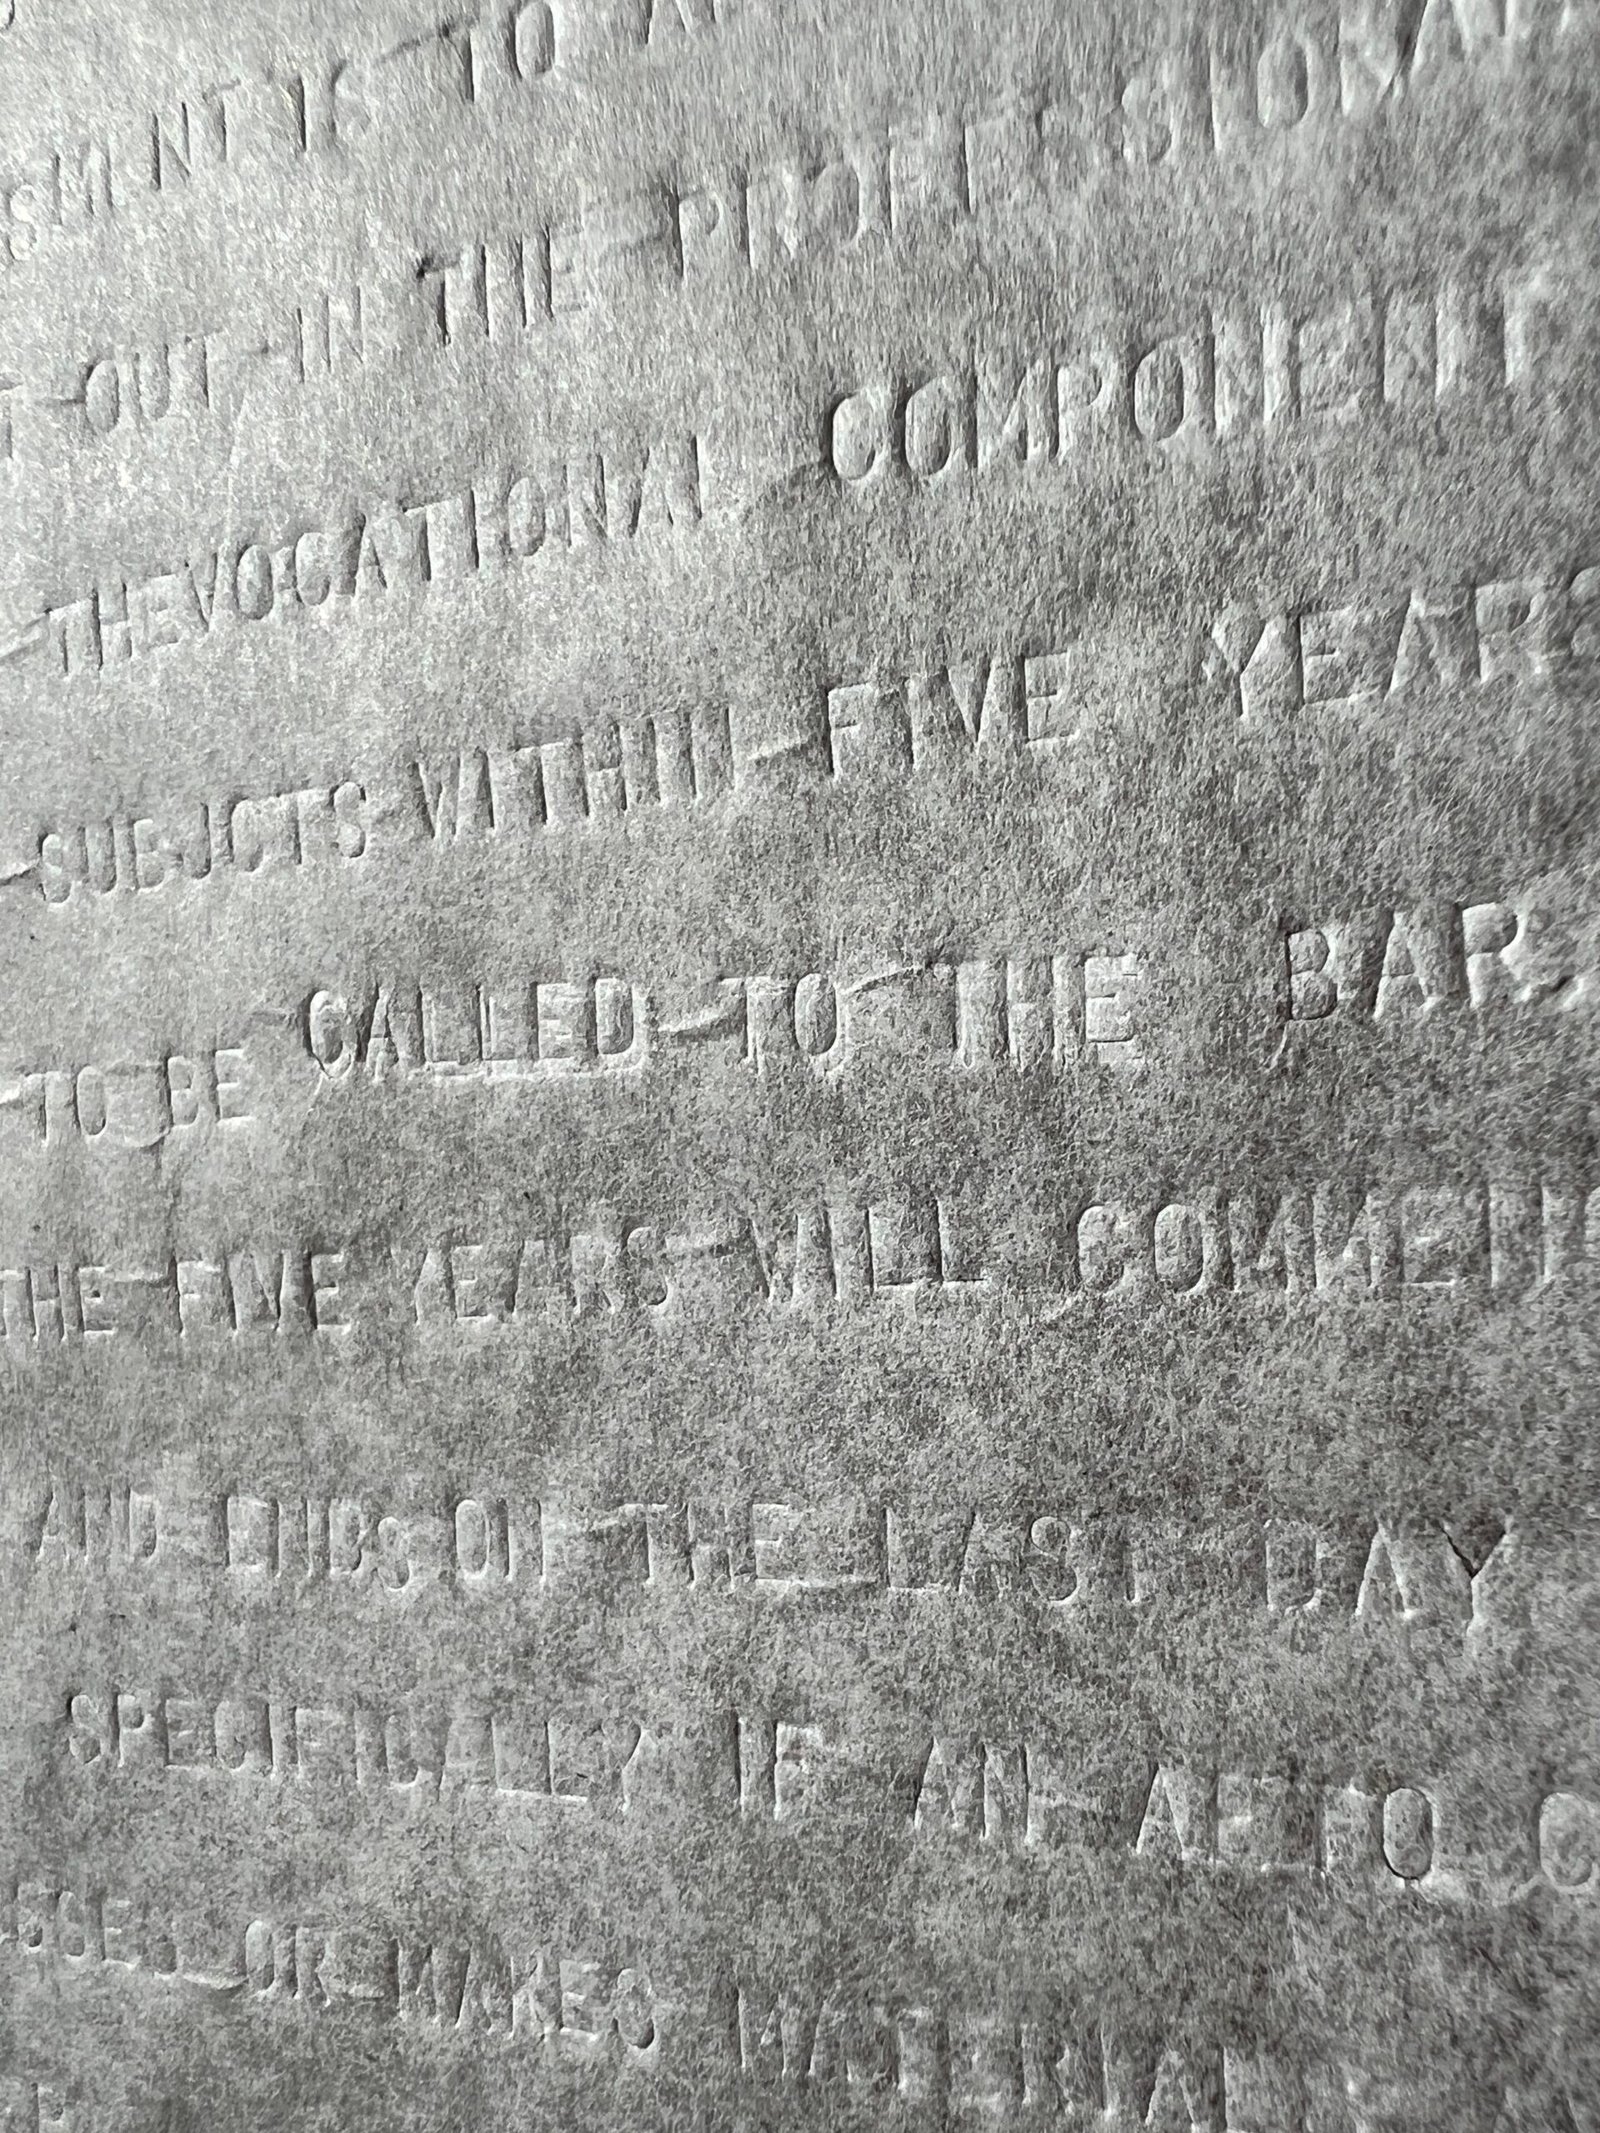 SMENT IS TO
OUT IN THE PROFESSIONAL
THE VOCATIONAL COMPONENT
SUBJCTS WITHIN FIVE YEARS
TO BE CALLED TO THE BAR,
THE FIVE YEARS WILL COMMENC
AND ENDS ON THE LAST DAY
SPECIFICALLY IF AN AETO C
OR MAKES MATERIAL